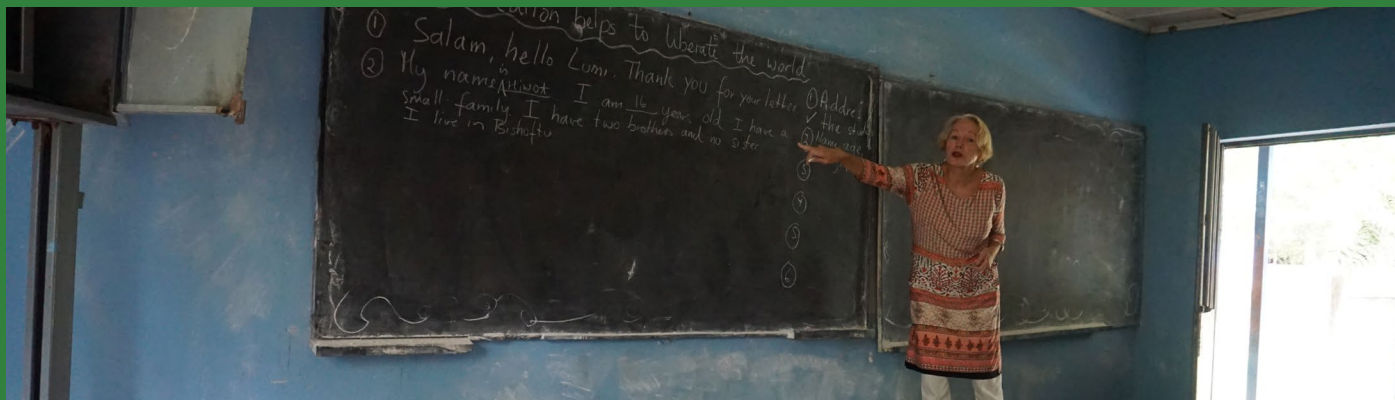 helps to liberate the world
① Salam, hello Lumi. Thank you for your letter
② My name is Hiwot I am 16 years old I have a
small family I have two brothers and no sister
I live in Bishoftu
①
✓ the
② Name age
③
④
⑤
⑥